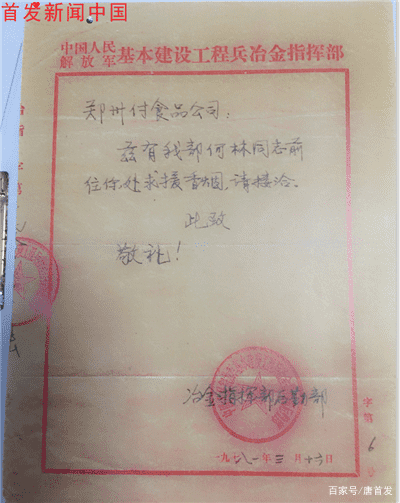 首发新闻中国
中国人民
解放军 基本建设工程兵冶金指挥部
郑州付食品公司：
兹有我部何林同志前
往你处求援香烟，请接洽。
此致
敬礼！
冶金指挥部后勤部
一九八一年三月十六日
字第6号
百家号/唐首发